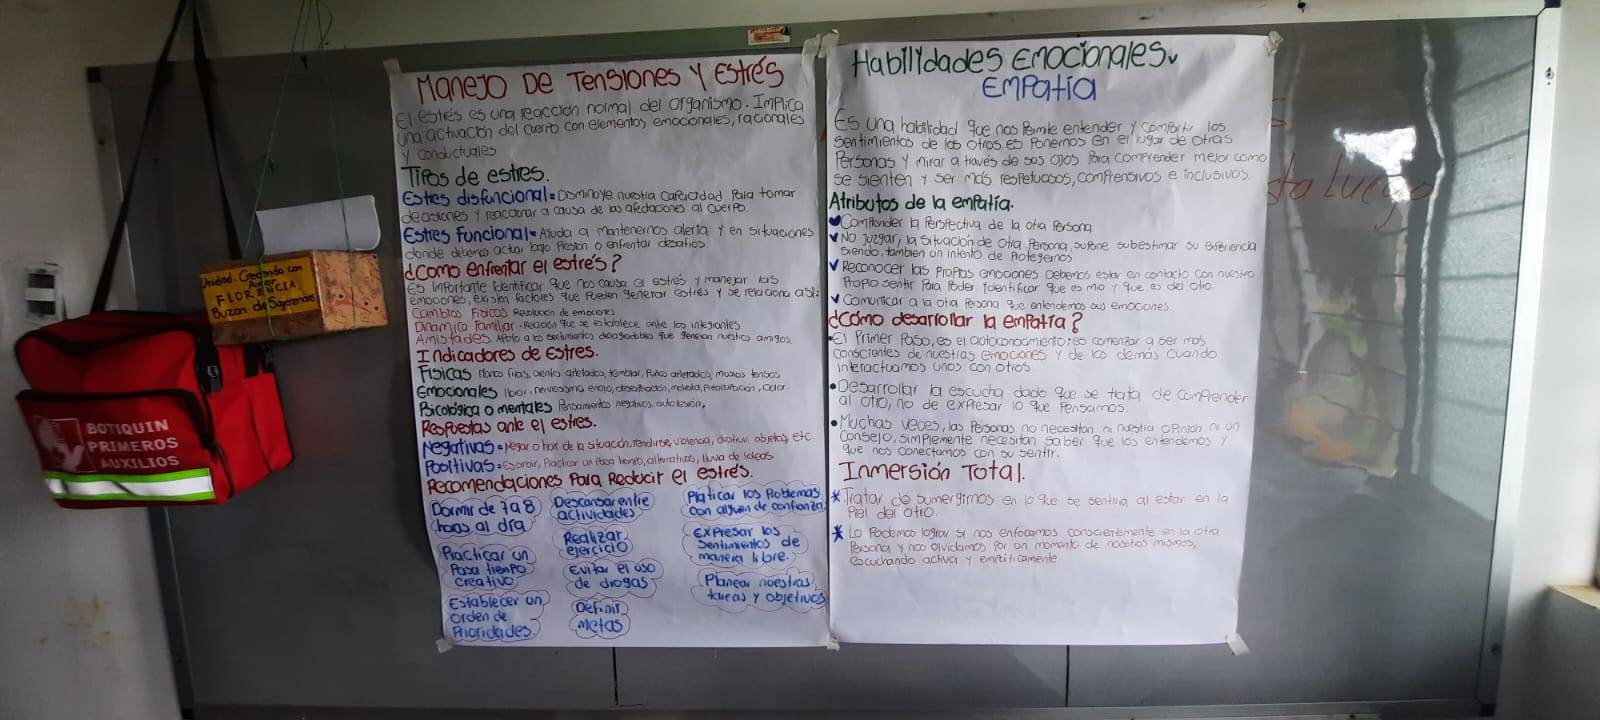 Manejo De Tensiones Y Estrés
El estrés es una reacción normal del organismo. Implica
una activación del cuerpo con elementos emocionales, racionales
y conductuales
Tipos de estres.
Estres disfuncional = Disminuye nuestra capacidad para tomar
decisiones y reaccionar a causa de las afectaciones al cuerpo.
Estres Funcional = Ayuda a mantenernos alerta y en situaciones
donde debemos actuar bajo presión o enfrentar desafios.
¿Como enfrentar el estrés?
Es importante identificar que nos causa el estrés y manejar las
emociones, existen factores que pueden generar estrés y se relaciona así:
Cambios Fisicos Revolución de emociones
Dinamica Familiar - Relación que se establece ante los integrantes
Amistades. Apoyo a los sentimientos desagradables que generan nuestros amigos.
Indicadores de estres.
Fisicas Manos frias, dientes apretados, temblar, Puños apretados, musculos tensos
Emocionales llorar, nerviosismo enojo, desesperación, molestia, Preocupación,
Psicológica o mentales Pensamientos negativos, autolesión.
Respuestas ante el estres.
Negativas = Negar o huir de la situación, rendirse, violencia, destruir objetos, etc
Positivas = Practicar un Pasa tiempo, alternativas, lluvia de ideas.
Recomendaciones Para Reducir el estrés.
Dormir de 7 a 8
horas al día
Descansar entre
actividades
Platicar los Problemas
con alguien de confianza.
Practicar un
Pasa tiempo
creativo
Realizar
ejercicio
Expresar los
Sentimientos de
manera libre.
Establecer un
orden de
Prioridades.
Evitar el uso
de drogas
Planear nuestras
tareas y objetivos
Definir
metas
Habilidades Emocionales.
Empatía
Es una habilidad que nos permite entender y compartir los
sentimientos de los otros. es Ponernos en el lugar de otras
Personas y mirar a través de sus ojos Para comprender mejor como
se sienten y ser más respetuosos, comprensivos e inclusivos.
Atributos de la empatía.
Comprender la Perspectiva de la otra Persona
No juzgar, la situación de otra Persona, supone subestimar su experiencia
siendo, tambien un intento de Protegernos
Reconocer las Propias emociones. Debemos estar en contacto con nuestro
Propio sentir Para Poder identificar que es mio y que es del otro.
Comunicar a la otra Persona que entendemos sus emociones.
¿Cómo desarrollar la empatía?
•El Primer Paso, es el autoconocimiento; es comenzar a ser más
conscientes de nuestras emociones y de los demás cuando
interactuamos unos con otros.
•Desarrollar la escucha dado que se trata de comprender
al otro, no de expresar lo que Pensamos.
•Muchas veces, las Personas no necesitan ni nuestra opinión ni un
consejo, simplemente necesitan saber que los entendemos y
que nos conectamos con su sentir.
Inmersión Total.
* Tratar de sumergirnos en lo que se sentiria al estar en la
Piel del otro.
* Lo Podemos lograr si nos enfocamos conscientemente en la otra
Persona y nos olvidamos Por un momento de nosotros mismos,
escuchando activa y empáticamente.
Luego
Unidad. Creciendo con
Amor
FLORENCIA
Buzon de Sugerencias
BOTIQUIN
PRIMEROS
AUXILIOS